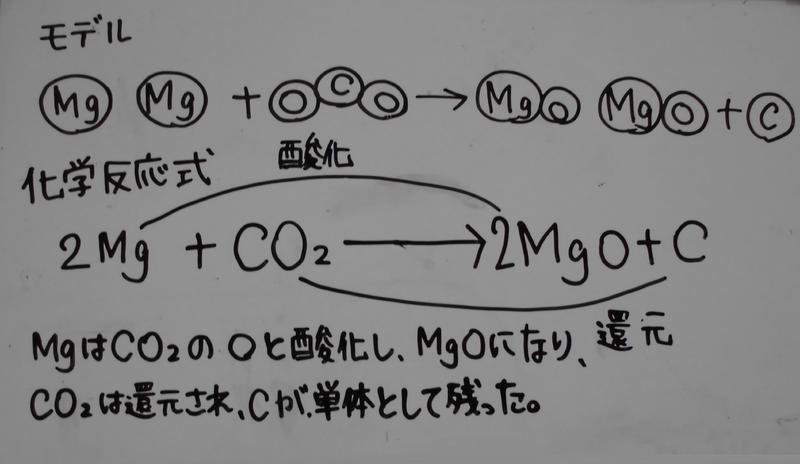 モデル
Mg Mg + O C O → Mg O Mg O + C
化学反応式
酸化
2Mg + CO₂ → 2MgO + C
還元
MgはCO₂のOと酸化し、MgOになり、
CO₂は還元され、Cが単体として残った。